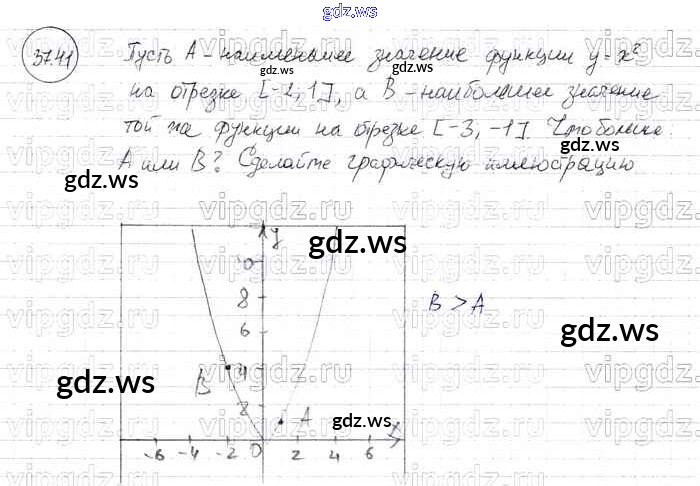 gdz.ws
37.41 Пусть A - наименьшее значение функции y = x²
на отрезке [-2, 1], а B - наибольшее значение
той же функции на отрезке [-3, -1]. Что больше:
A или B? Сделайте графическую иллюстрацию
gdz.ws
gdz.ws
y
gdz.ws
10
8
B > A
6
gdz.ws
4
B
gdz.ws
2
A
gdz.ws
x
-6 -4 -2 0 2 4 6
vipgdz.ru